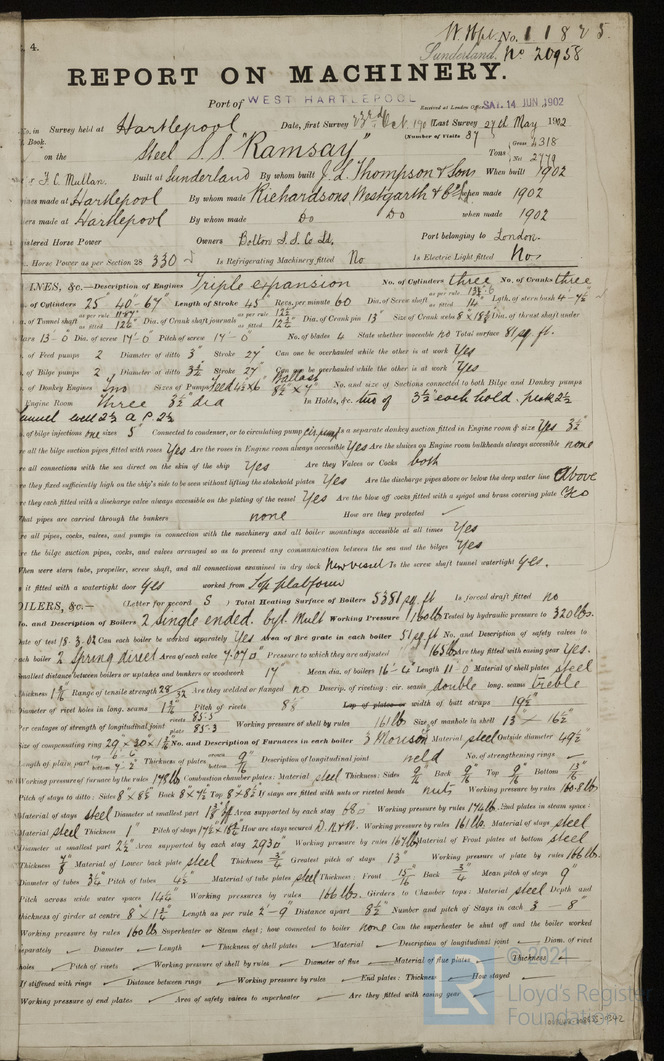 4.
W. Hpl. No. 11825.
Sunderland. No 20958
REPORT ON MACHINERY.
Port of WEST HARTLEPOOL Received at London Office SAT. 14 JUN. 1902
No. in Survey held at Hartlepool Date, first Survey 23rd Oct. 1901 Last Survey 27th May 1902
Book. (Number of Visits 87
on the Steel S.S. "Ramsay" Tons Gross 4318
Net 2779
F. C. Mullan. Built at Sunderland By whom built J. L. Thompson & Sons When built 1902
Engines made at Hartlepool By whom made Richardsons, Westgarth & Co Ld. when made 1902
Boilers made at Hartlepool By whom made Do Do when made 1902
Registered Horse Power Owners Bolton S.S. Co. Ld. Port belonging to London.
Horse Power as per Section 28 330 Is Refrigerating Machinery fitted No Is Electric Light fitted No.
INES, &c.—Description of Engines Triple expansion No. of Cylinders three No. of Cranks three
of Cylinders 25" 40" 67" Length of Stroke 45" Revs. per minute 60 Dia. of Screw shaft as per rule as fitted 14" Lgth. of stern bush 4-7½"
Dia. of Tunnel shaft as per rule as fitted Dia. of Crank shaft journals as per rule as fitted Dia. of Crank pin 13" Size of Crank webs Dia. of thrust shaft under
collars 13-0 Dia. of screw 17'-0" Pitch of screw 17'-0" No. of blades 4 State whether moveable no Total surface 81 sq. ft.
of Feed pumps 2 Diameter of ditto 3" Stroke 27" Can one be overhauled while the other is at work Yes
of Bilge pumps 2 Diameter of ditto 3½" Stroke 27" Can one be overhauled while the other is at work Yes
of Donkey Engines Two Sizes of Pumps Feed 4½ x 6" Ballast 8½ x 7" No. and size of Suctions connected to both Bilge and Donkey pumps
Engine Room Three 3½" dia In Holds, &c. two of 3½" each hold. peak 2½
Tunnel well 2½ A.P. 2½
of bilge injections one sizes 5" Connected to condenser, or to circulating pump cir. pump Is a separate donkey suction fitted in Engine room & size Yes 3½"
are all the bilge suction pipes fitted with roses Yes Are the roses in Engine room always accessible Yes Are the sluices on Engine room bulkheads always accessible none
are all connections with the sea direct on the skin of the ship Yes Are they Valves or Cocks both
are they fixed sufficiently high on the ship's side to be seen without lifting the stokehold plates Yes Are the discharge pipes above or below the deep water line above
are they each fitted with a discharge valve always accessible on the plating of the vessel Yes Are the blow off cocks fitted with a spigot and brass covering plate Yes
What pipes are carried through the bunkers none How are they protected ✓
are all pipes, cocks, valves, and pumps in connection with the machinery and all boiler mountings accessible at all times Yes
are the bilge suction pipes, cocks, and valves arranged so as to prevent any communication between the sea and the bilges Yes
When were stern tube, propeller, screw shaft, and all connections examined in dry dock New vessel Is the screw shaft tunnel watertight Yes.
is it fitted with a watertight door Yes worked from Top platform
OILERS, &c.— (Letter for record S ) Total Heating Surface of Boilers 5381 sq. ft Is forced draft fitted no
No. and Description of Boilers 2 single ended. cyl. Mult Working Pressure 160 lb Tested by hydraulic pressure to 320 lbs.
Date of test 18.3.02 Can each boiler be worked separately Yes Area of fire grate in each boiler 51 sq. ft No. and Description of safety valves to
each boiler 2 Spring direct Area of each valve 7.07 □" Pressure to which they are adjusted 165 lb Are they fitted with easing gear Yes.
Smallest distance between boilers or uptakes and bunkers or woodwork 17" Mean dia. of boilers 16'-6" Length 11'-0" Material of shell plates steel
Thickness Range of tensile strength 28/32 Are they welded or flanged no Descrip. of riveting: cir. seams double long. seams treble
Diameter of rivet holes in long. seams Pitch of rivets 8⅞ Lap of plates or width of butt straps 19½"
Per centages of strength of longitudinal joint rivets 85.5 plate 85.3 Working pressure of shell by rules 161 lb Size of manhole in shell 13 x 16½"
Size of compensating ring 29" x 30" No. and Description of Furnaces in each boiler 3 Morison Material steel Outside diameter 49½
Length of plain part top bottom Thickness of plates crown bottom Description of longitudinal joint weld No. of strengthening rings —
Working pressure of furnace by the rules 178 lb Combustion chamber plates: Material steel Thickness: Sides 9/16 Back 9/16 Top 9/16 Bottom 13/16
Pitch of stays to ditto: Sides Back Top If stays are fitted with nuts or riveted heads nuts Working pressure by rules 160.8 lb
Material of stays steel Diameter at smallest part Area supported by each stay 68 □ Working pressure by rules 174 lb. End plates in steam space:
Material steel Thickness 1" Pitch of stays How are stays secured D.N.&W. Working pressure by rules 161 lb. Material of stays steel
Diameter at smallest part 2½ Area supported by each stay 293 □ Working pressure by rules 167 lb Material of Front plates at bottom steel
Thickness 7/8" Material of Lower back plate steel Thickness 3/4 Greatest pitch of stays 13" Working pressure of plate by rules 166 lb.
Diameter of tubes 3¼ Pitch of tubes 4½" Material of tube plates steel Thickness: Front 15/16 Back 3/4 Mean pitch of stays 9"
Pitch across wide water spaces 14½" Working pressures by rules 166 lbs. Girders to Chamber tops: Material steel Depth and
thickness of girder at centre 8 x 1½" Length as per rule 2'-9" Distance apart 8½" Number and pitch of Stays in each 3 – 8"
Working pressure by rules 160 lb Superheater or Steam chest; how connected to boiler none Can the superheater be shut off and the boiler worked
separately — Diameter — Length — Thickness of shell plates — Material — Description of longitudinal joint — Diam. of rivet
holes — Pitch of rivets — Working pressure of shell by rules — Diameter of flue — Material of flue plates — Thickness —
If stiffened with rings — Distance between rings — Working pressure by rules — End plates: Thickness — How stayed —
Working pressure of end plates — Area of safety valves to superheater — Are they fitted with easing gear —
© 2021
Lloyd's Register
Foundation